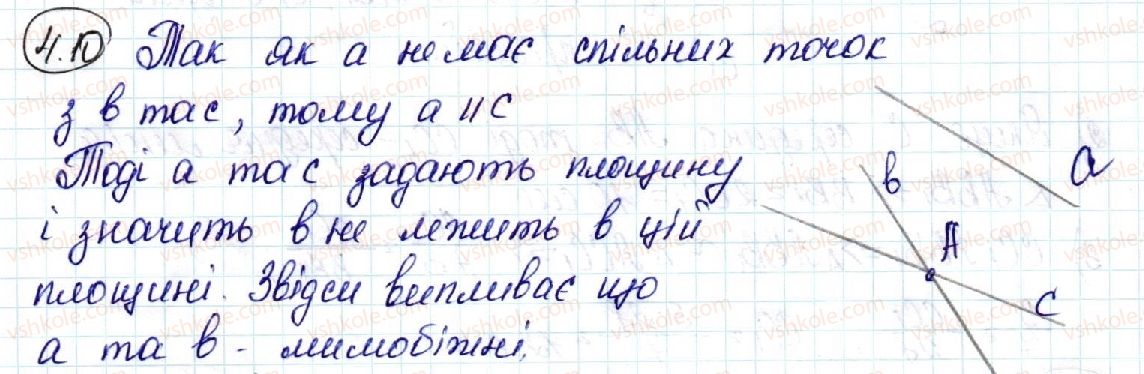 4.10 Так як а не має спільних точок
з в та с, тому а || с
Тоді а та с задають площину
і значить в не лежить в цій
площині. Звідси випливає що
а та в - мимобіжні.
а
в
А
с
vshkole.com